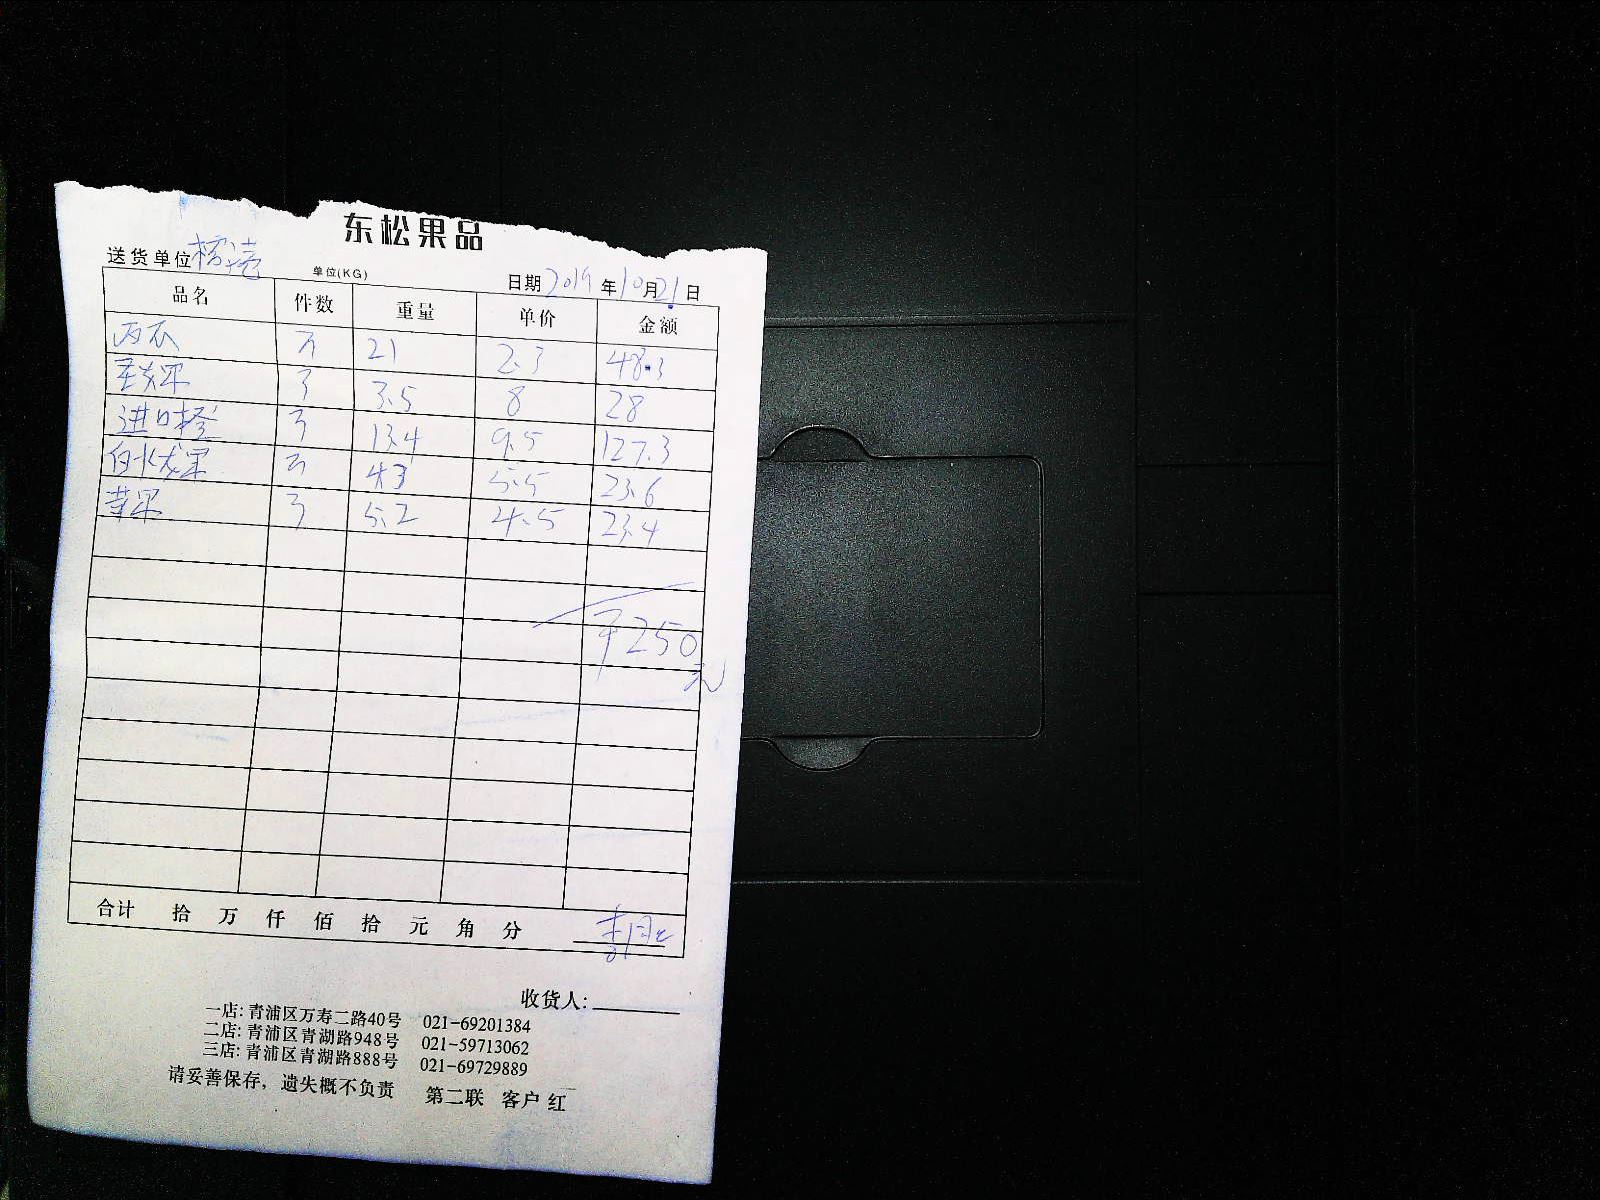 东松果品
送货单位 单位(KG) 日期2019年10月21日
品名 件数 重量 单价 金额
西瓜 21 2.3 48.3
圣女果 3.5 8 28
进口橙 13.4 9.5 127.3
白火龙果 4.3 5.5 23.6
苹果 5.2 4.5 23.4
¥250元
合计 拾 万 仟 佰 拾 元 角 分
收货人:
一店: 青浦区万寿二路40号 021-69201384
二店: 青浦区青湖路948号 021-59713062
三店: 青浦区青湖路888号 021-69729889
请妥善保存，遗失概不负责 第二联 客户 红